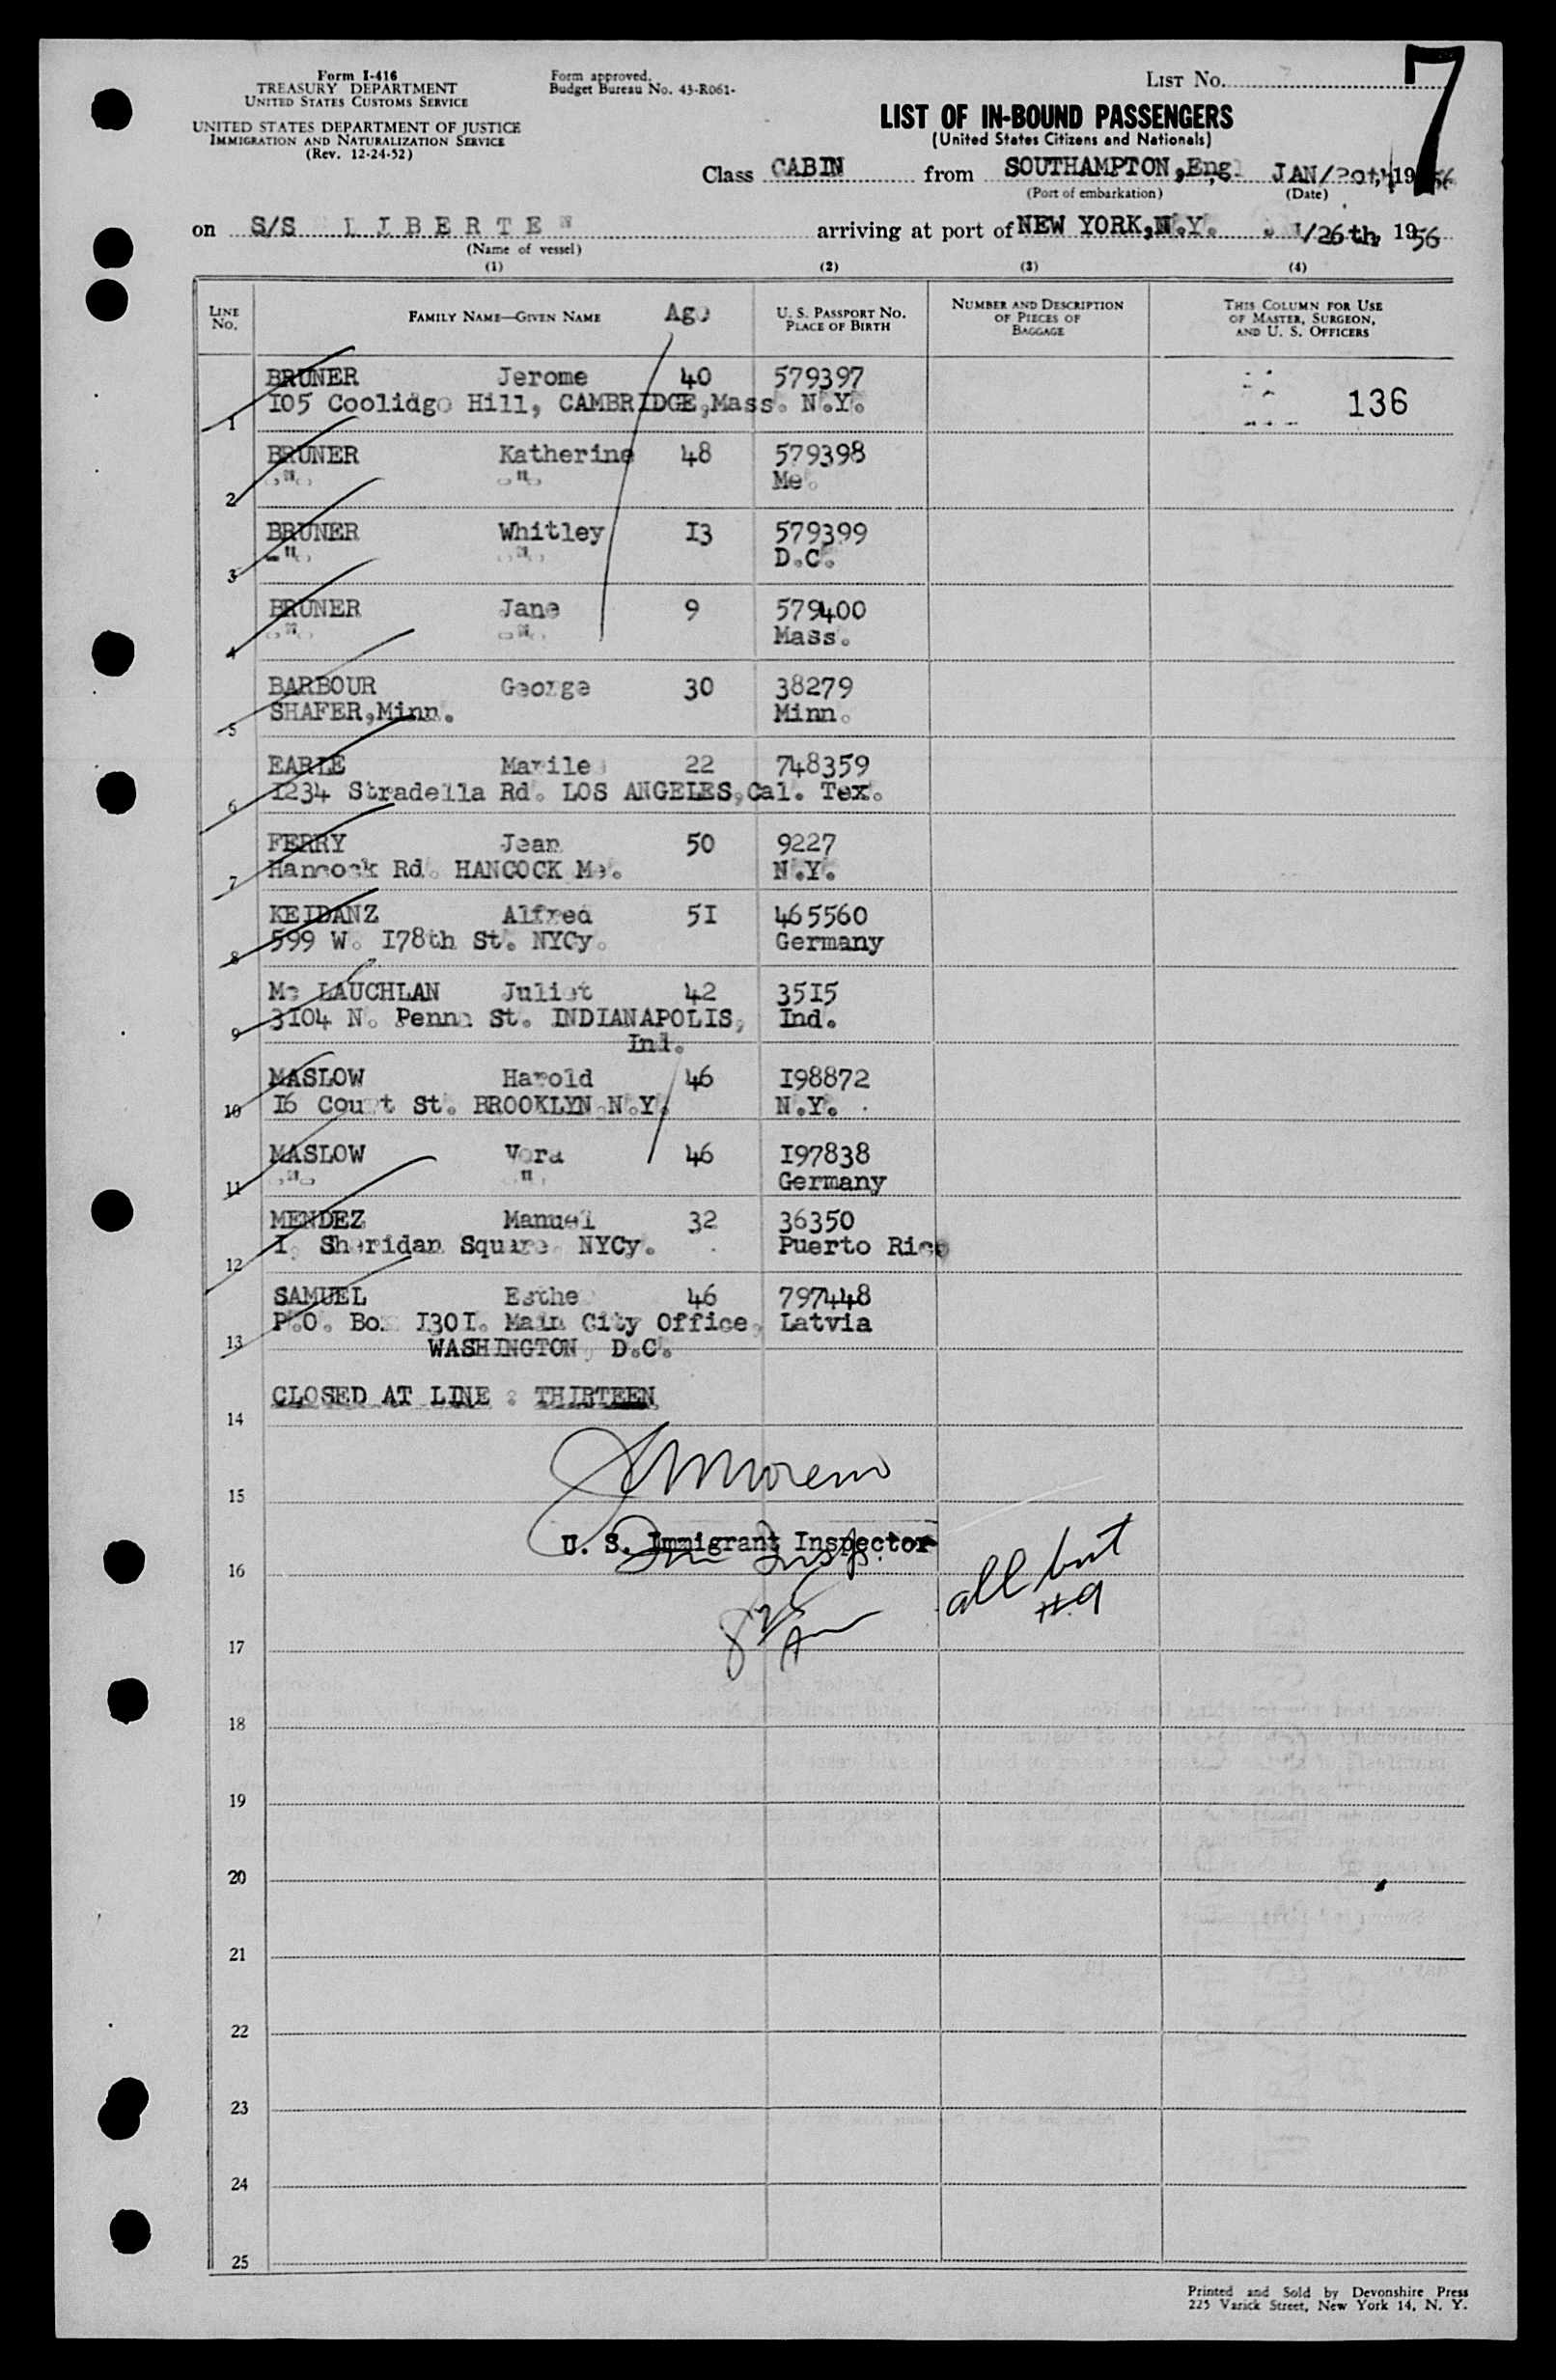 Form I-416
TREASURY DEPARTMENT
UNITED STATES CUSTOMS SERVICE
UNITED STATES DEPARTMENT OF JUSTICE
IMMIGRATION AND NATURALIZATION SERVICE
(Rev. 12-24-52)
Form approved.
Budget Bureau No. 43-R061-
LIST No. 7
LIST OF IN-BOUND PASSENGERS
(United States Citizens and Nationals)
Class CABIN from SOUTHAMPTON, Eng. JAN/20th, 1956
(Port of embarkation) (Date)
on S/S LIBERTE arriving at port of NEW YORK, N.Y. 1/26th, 1956
(Name of vessel)
(1) (2) (3) (4)
LINE No. FAMILY NAME—GIVEN NAME Age U. S. PASSPORT No. PLACE OF BIRTH NUMBER AND DESCRIPTION OF PIECES OF BAGGAGE THIS COLUMN FOR USE OF MASTER, SURGEON, AND U. S. OFFICERS
BRUNER Jerome 40 579397
1 105 Coolidge Hill, CAMBRIDGE,Mass. N.Y. 136
BRUNER Katherine 48 579398
2 -"- -"- Me.
BRUNER Whitley 13 579399
3 -"- -"- D.C.
BRUNER Jane 9 579400
4 -"- -"- Mass.
BARBOUR George 30 38279
5 SHAFER,Minn. Minn.
EARLE Marile 22 748359
6 1234 Stradella Rd. LOS ANGELES,Cal. Tex.
FERRY Jean 50 9227
7 Hancock Rd. HANCOCK Me. N.Y.
KEIDANZ Alfred 51 465560
8 599 W. 178th St. NYCy. Germany
Mc LAUCHLAN Juliet 42 3515
9 3104 N. Penna St. INDIANAPOLIS, Ind.
Ind.
MASLOW Harold 46 198872
10 16 Court St. BROOKLYN N.Y. N.Y.
MASLOW Vera 46 197838
11 -"- " Germany
MENDEZ Manuel 32 36350
12 1, Sheridan Square NYCy. Puerto Rico
SAMUEL Esthe 46 797448
P.O. Box 1301. Main City Office, Latvia
13 WASHINGTON, D.C.
CLOSED AT LINE : THIRTEEN
14
Moreno
15
U. S. Immigrant Inspector
Imm Insp.
16 all but
#9
8 25 A
17
18
19
20
21
22
23
24
25
Printed and Sold by Devonshire Press
225 Varick Street, New York 14, N. Y.